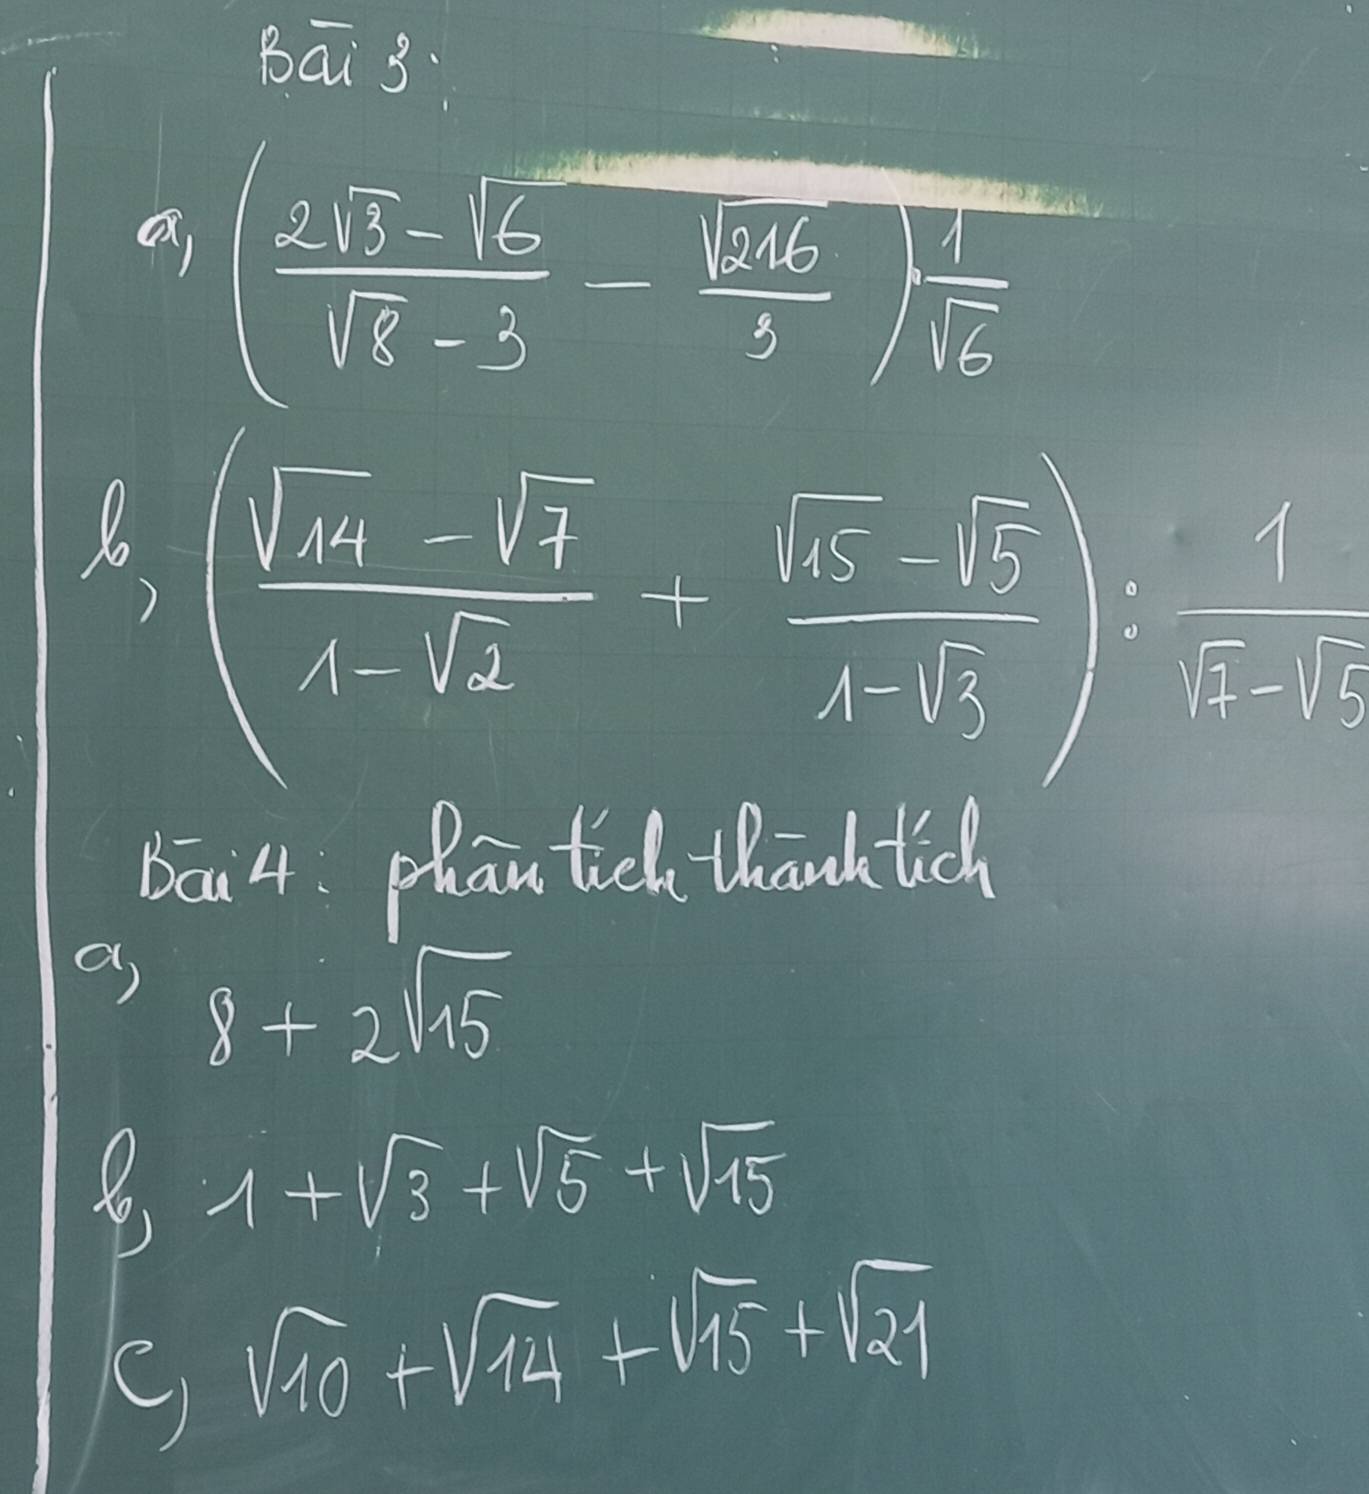 Bài 3:
a, ( (2√3 - √6)/(√8 - 3) - √216/3 ) . 1/√6
b, ( (√14 - √7)/(1 - √2) + (√15 - √5)/(1 - √3) ) : 1/(√7 - √5)
Bài 4: phân tích thành tích
a, 8 + 2√15
b, 1 + √3 + √5 + √15
c, √10 + √14 + √15 + √21